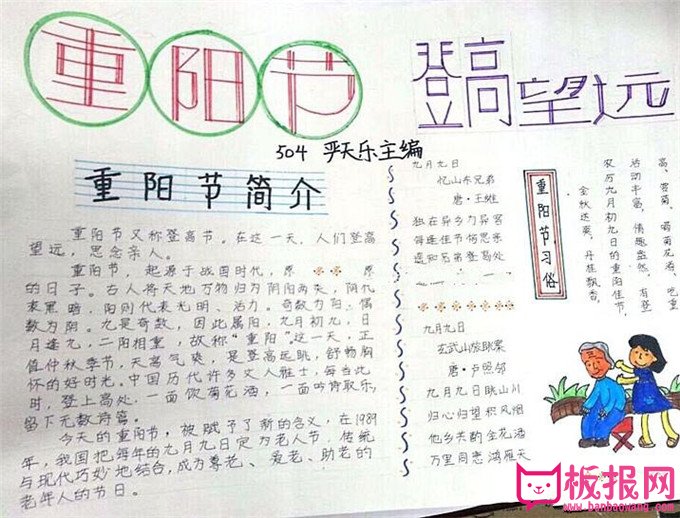 重阳节
登高望远
504 严天乐主编
重阳节简介
重阳节又称登高节。在这一天，人们登高
望远，思念亲人。
重阳节，起源于战国时代，原 原
的日子。古人将天地万物归为阴阳两类，阴代
表黑暗，阳则代表光明、活力。奇数为阳，偶
数为阴。九是奇数，因此属阳，九月初九，日
月逢九，二阳相重，故称“重阳”这一天，正
值仲秋季节，天高气爽，是登高远眺，舒畅胸
怀的好时光。中国历代许多文人雅士，每当此
时，登上高处，一面饮菊花酒，一面吟诗取乐，
留下无数诗篇。
今天的重阳节，被赋予了新的含义，在1989
年，我国把每年的九月九日定为老人节，传统
与现代巧妙地结合，成为尊老、爱老、助老的
老年人的节日。
九月九日
忆山东兄弟
唐·王维
独在异乡为异客
每逢佳节倍思亲
遥知兄弟登高处
九月九日
玄武山旅眺
唐·卢照邻
九月九日眺山川
归心归望积风烟
他乡共酌金花酒
万里同悲鸿雁天
重阳节习俗
金秋送爽，丹桂飘香，
农历九月初九的重阳佳节，
活动丰富，情趣盎然，有登
高、赏菊、喝菊花酒、吃重
板报网
www.banbaowang.com